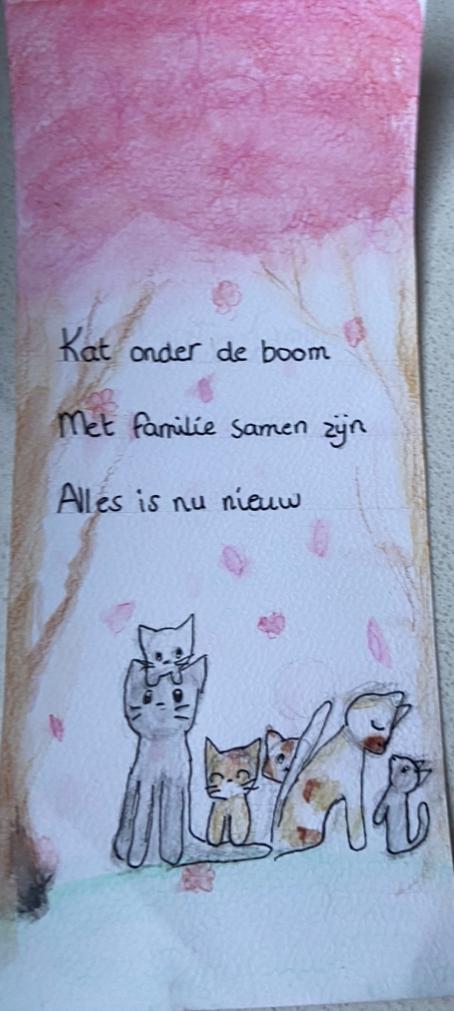 Kat onder de boom
Met familie samen zijn
Alles is nu nieuw